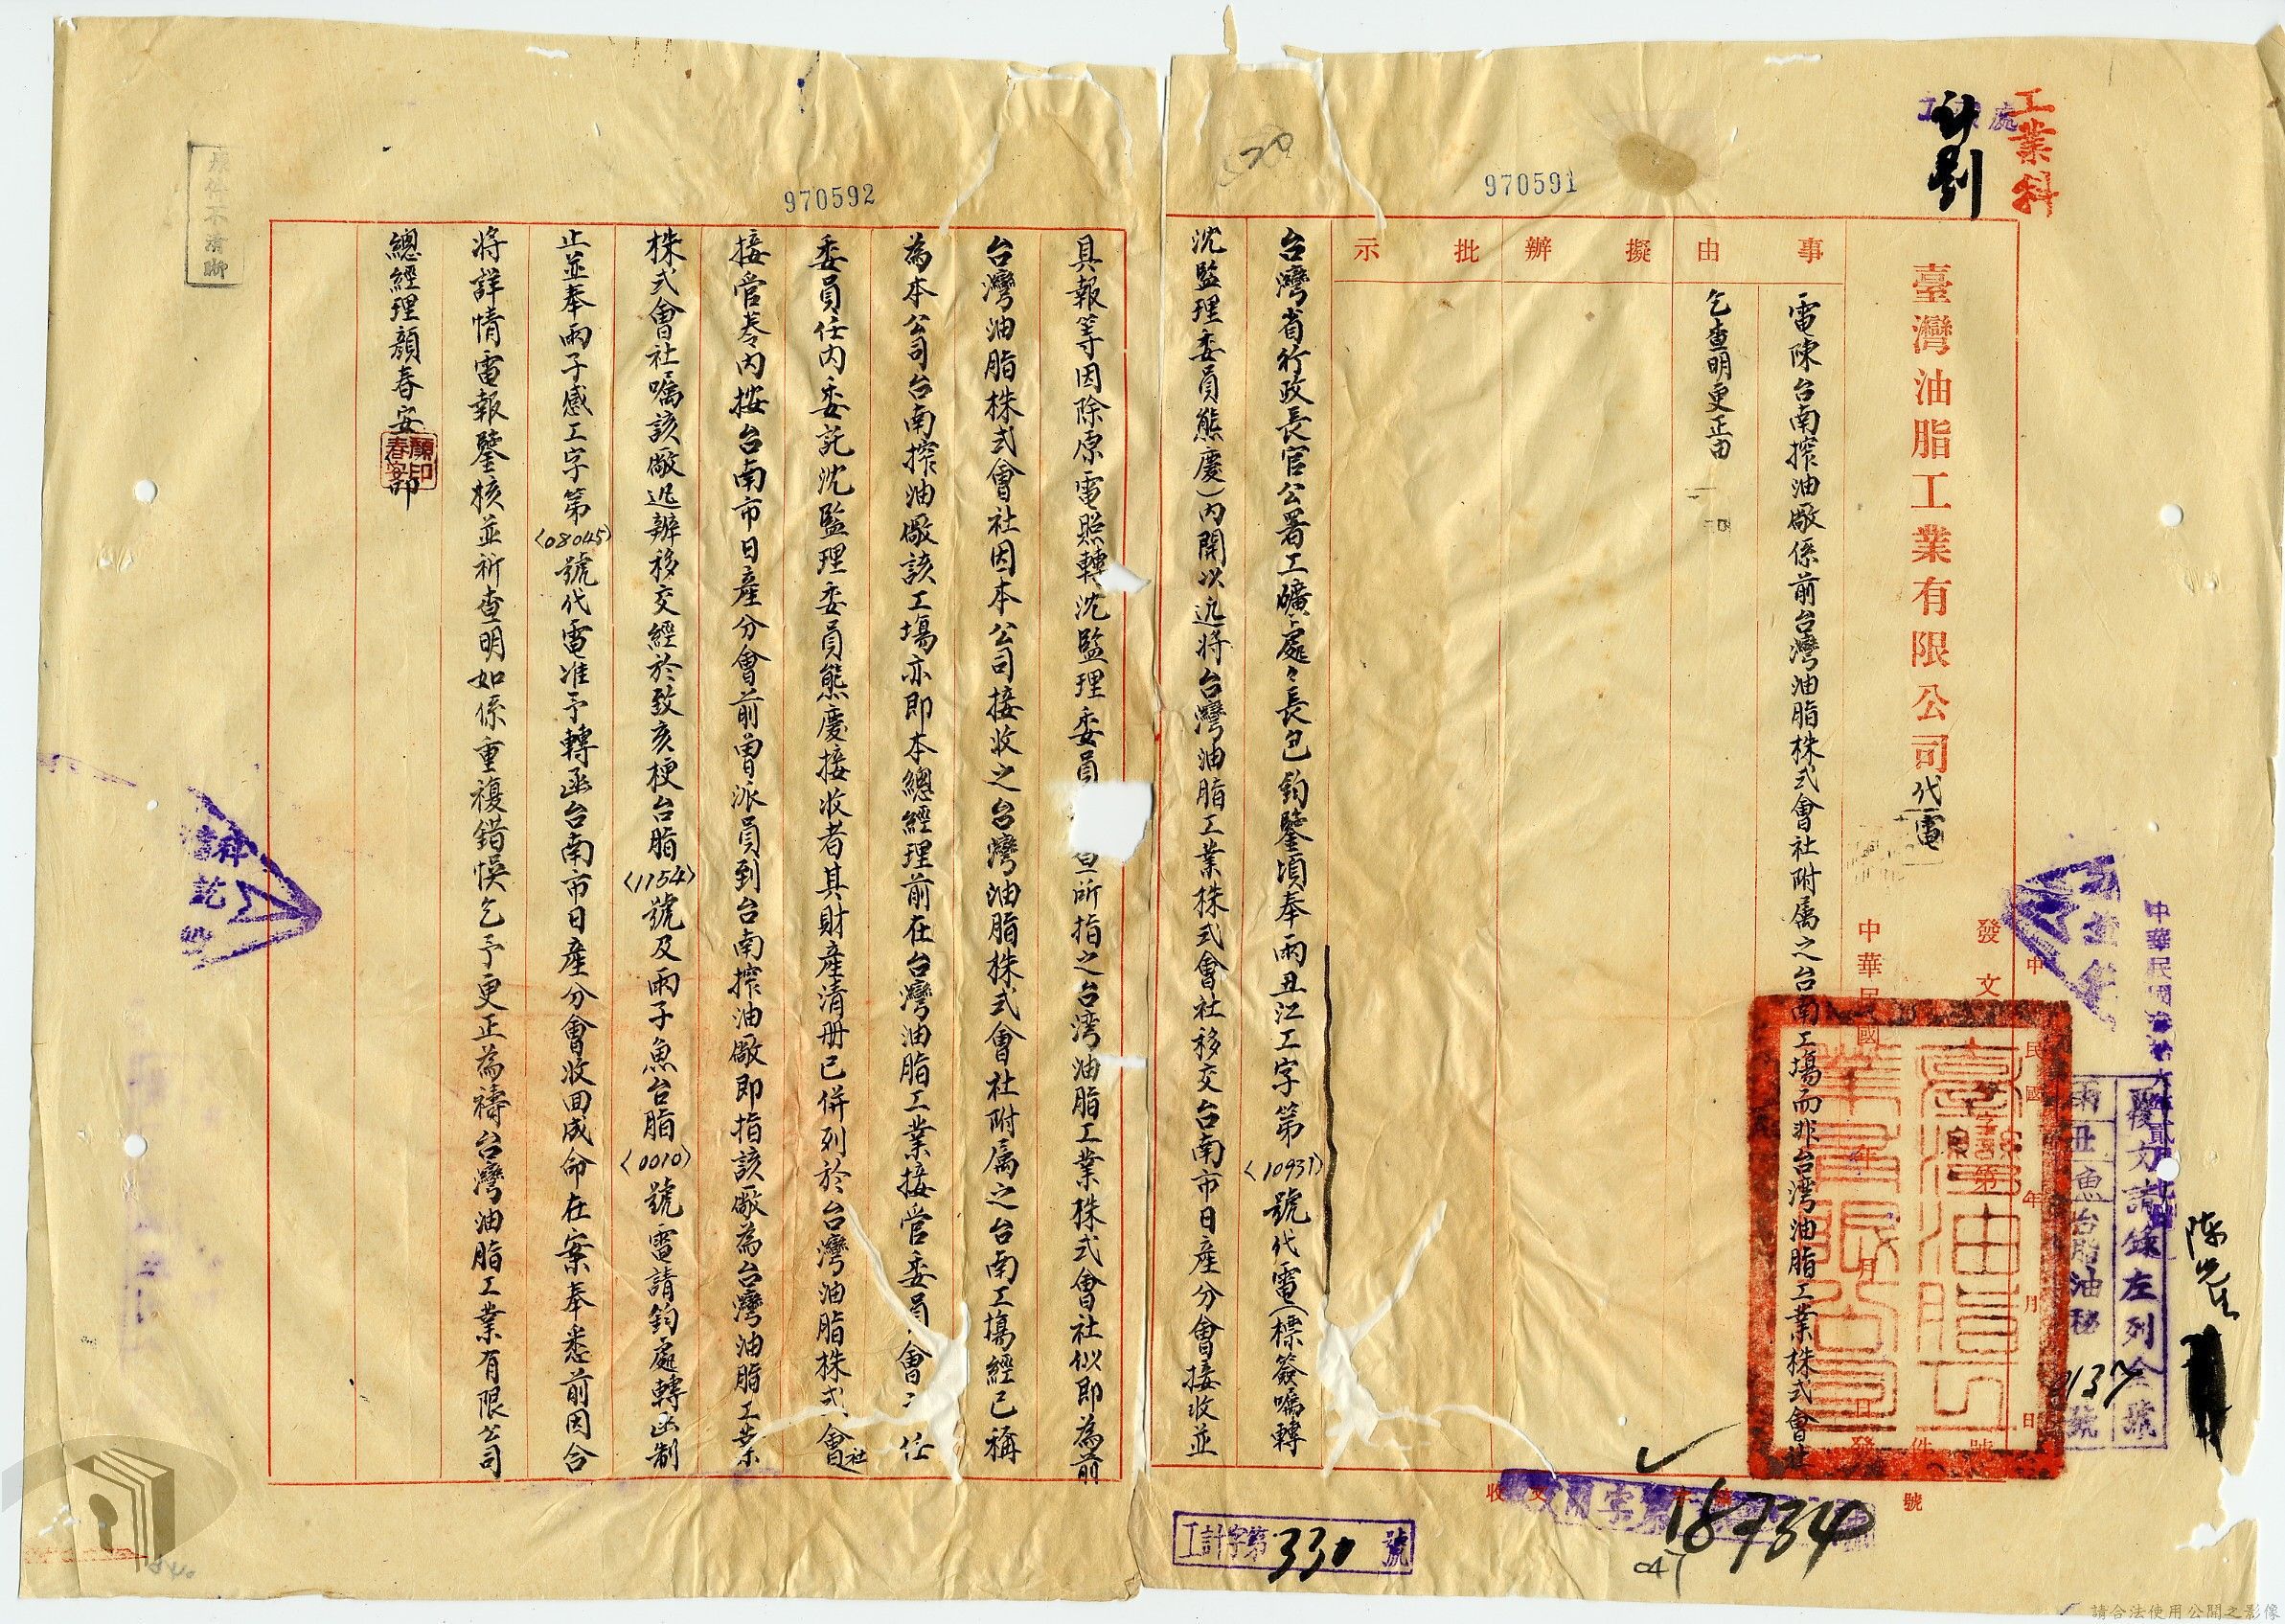 工業科
計劃
970591
970592
臺灣油脂工業有限公司
代電
事由
擬辦
批示
電陳台南搾油廠係前台灣油脂株式會社附属之台南工場而非台灣油脂工業株式會社
乞查明更正由
中華民國 年 月 日發
發文
中 民國 年 月 日
字第
件 號
覆方請錄左列全號
雨丑魚台脂油秘
號
陳先生
台灣省行政長官公署工礦處々長包鈞鑒頃奉雨丑江工字第(10931)號代電(標簽囑轉
沈監理委員熊慶)內開以迅將台灣油脂工業株式會社移交台南市日產分會接收並
具報等因除原電照轉沈監理委員 查所指之台湾油脂工業株式會社似即為前
台灣油脂株式會社因本公司接收之台灣油脂株式會社附属之台南工場經已稱
為本公司台南搾油廠該工場亦即本總經理前在台灣油脂工業接管委員會 任
委員任內委託沈監理委員熊慶接收者其財產清册已併列於台灣油脂株式會社
接管卷內按台南市日產分會前曾派員到台南搾油廠即指該廠為台灣油脂工業
株式會社囑該廠迅辦移交經於致亥梗台脂(1154)號及雨子魚台脂(0010)號電請鈞處轉函制
止並奉雨子感工字第(08045)號代電准予轉函台南市日產分會收回成命在案奉悉前因合
將詳情電報鑒核並祈查明如係重複錯悞乞予更正為禱台灣油脂工業有限公司
總經理顏春安叩
顏春安印
收文
字第
號
18734
工計字第330號
047
請合法使用公開之影像